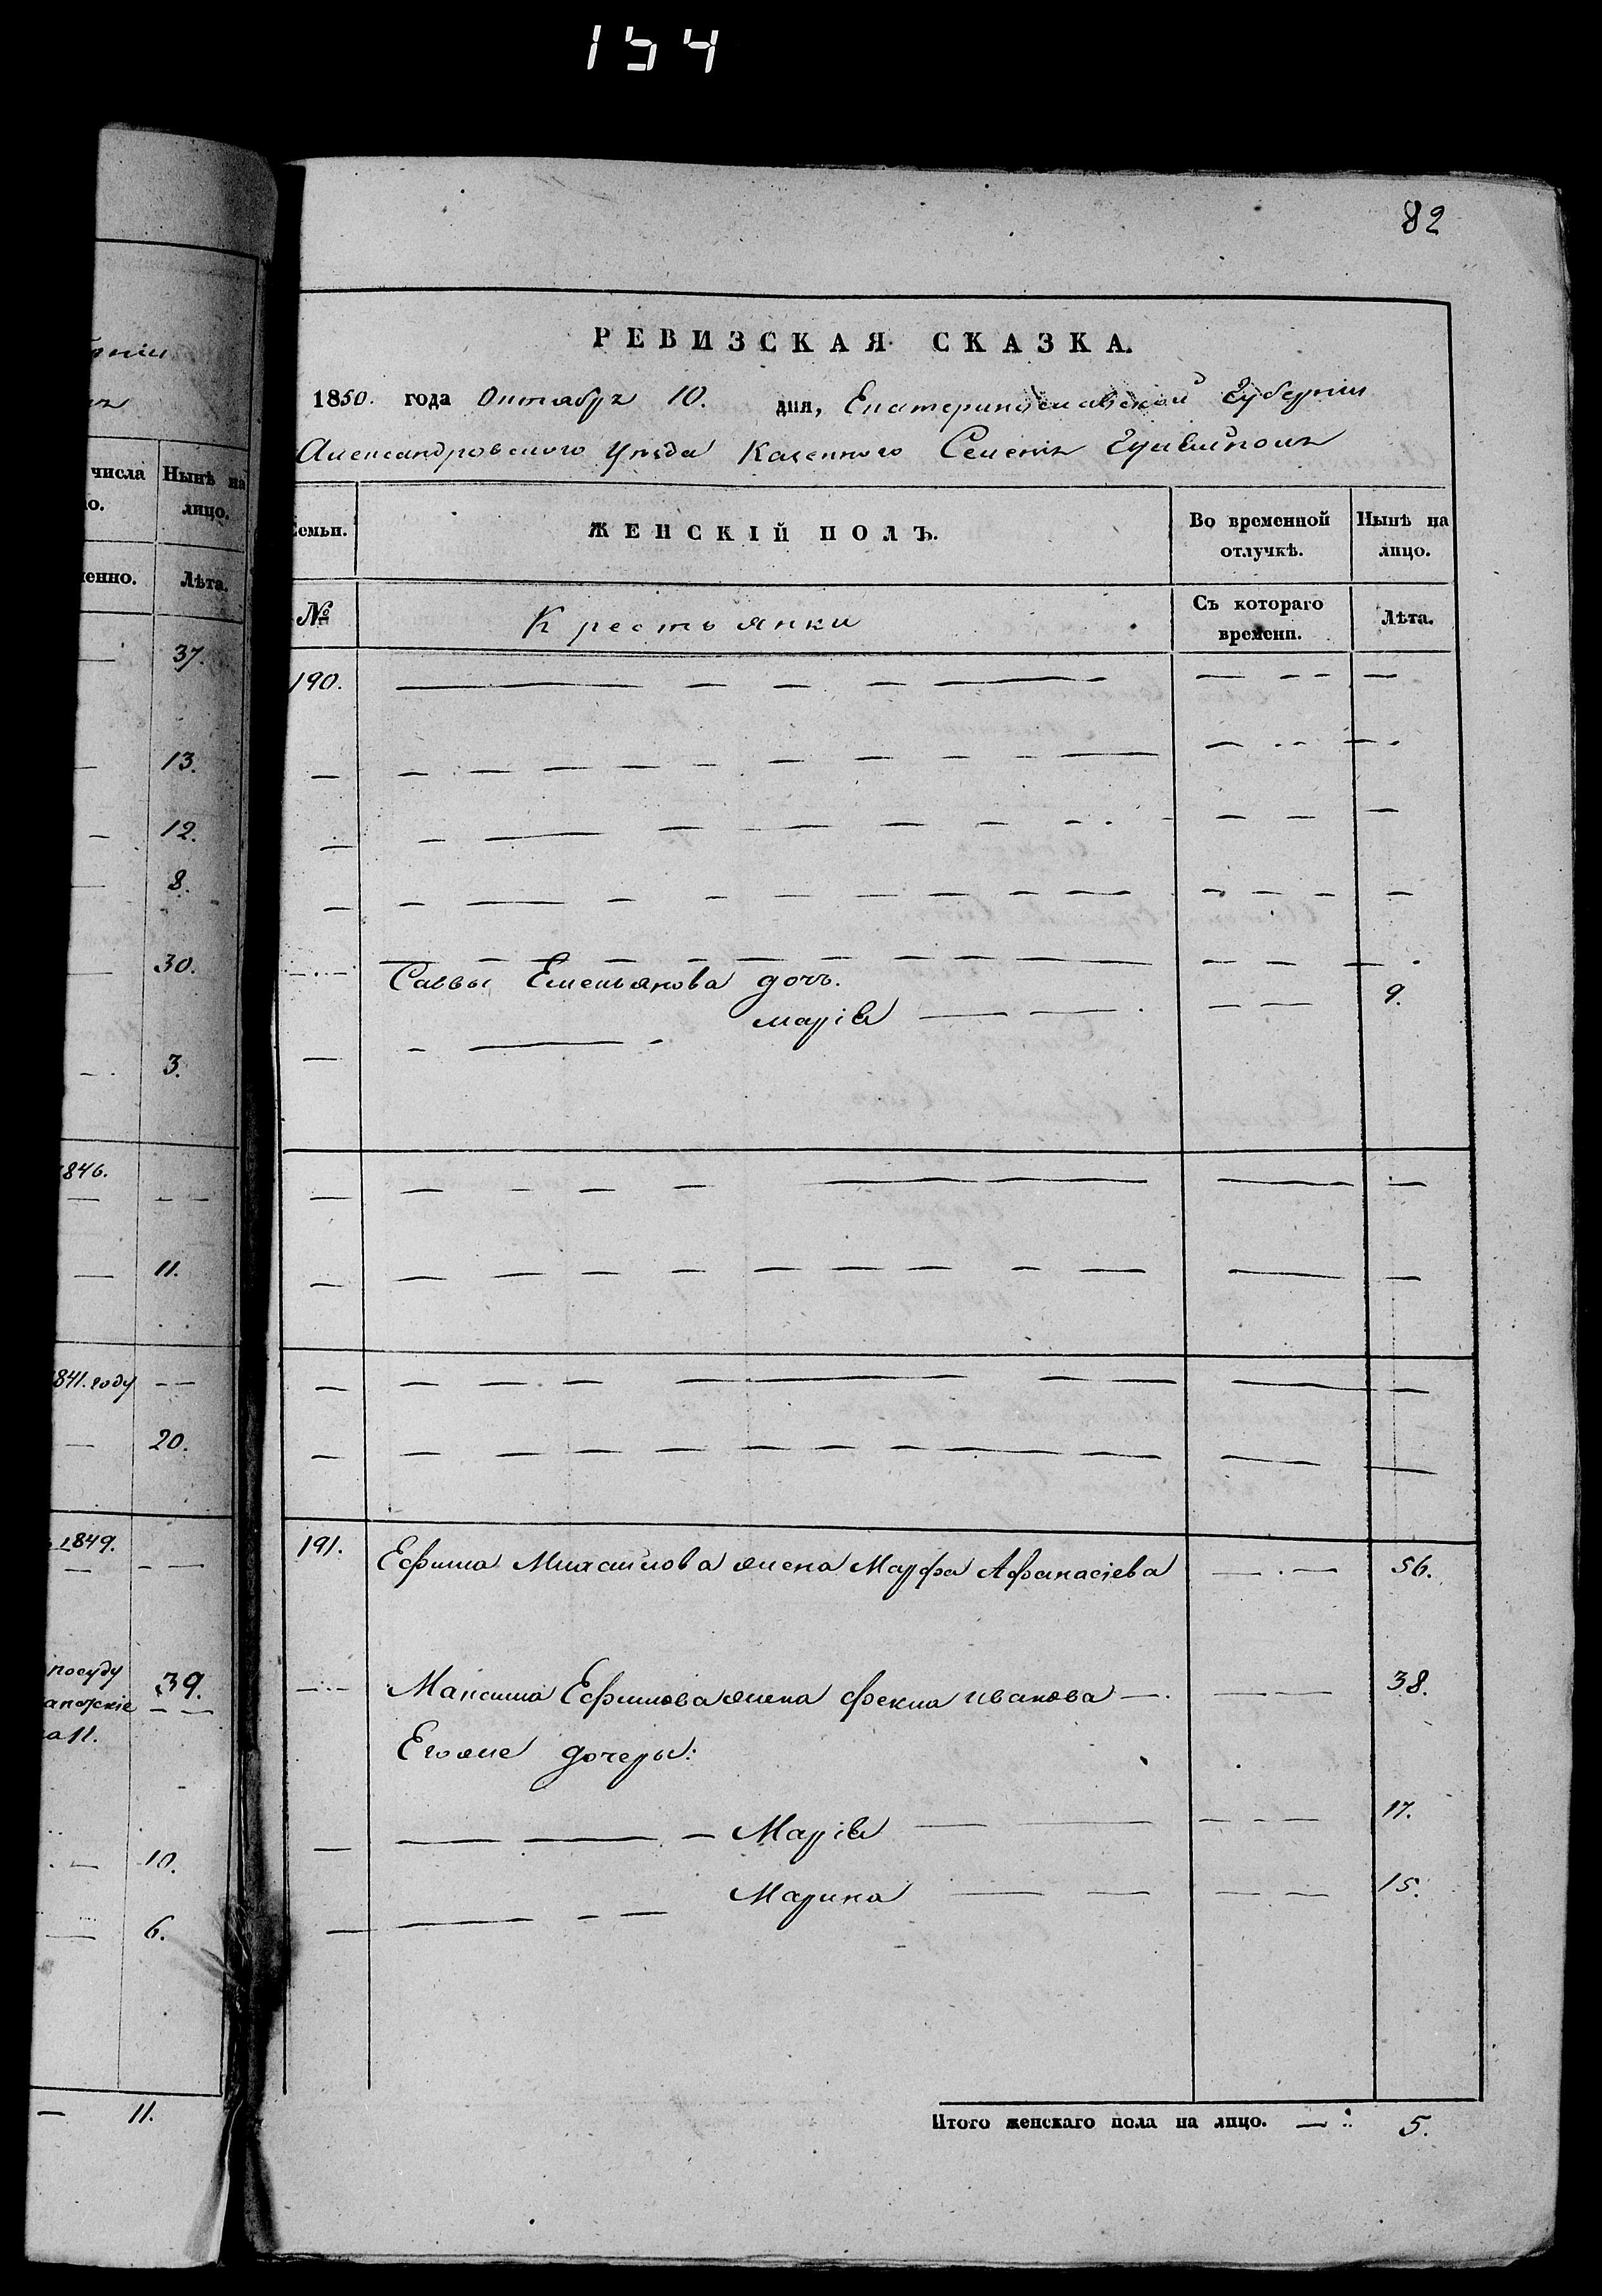 154
82
РЕВИЗСКАЯ СКАЗКА.
1850. года Октября 10. дня, Екатеринославской Губернии
Александровского уезда Казенного Селения
числа Нынѣ на
ло. лицо.
менно. Лѣта.
37.
13.
12.
8.
30.
3.
1846.
11.
1841. году
20.
1849.
посуду 39.
10.
6.
11.
Семьи. ЖЕНСКІЙ ПОЛЪ. Во временной отлучкѣ. Нынѣ на лицо.
№ Крестьянки Съ котораго времени. Лѣта.
190.
Саввы Емельянова дочь.
Марія 9.
191. Ефима Михайлова жена Марфа Афанасіева 56.
Максима Ефимова жена Фекла Иванова 38.
Егоже дочеры:
Марія 17.
Марина 15.
Итого женскаго пола на лицо. 5.